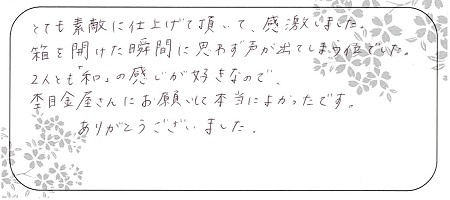 とても素敵に仕上げて頂いて、感激しました。
箱を開けた瞬間に思わず声が出てしまう位でした。
2人とも「和」の感じが好きなので、
杢目金屋さんにお願いして本当によかったです。
ありがとうございました。